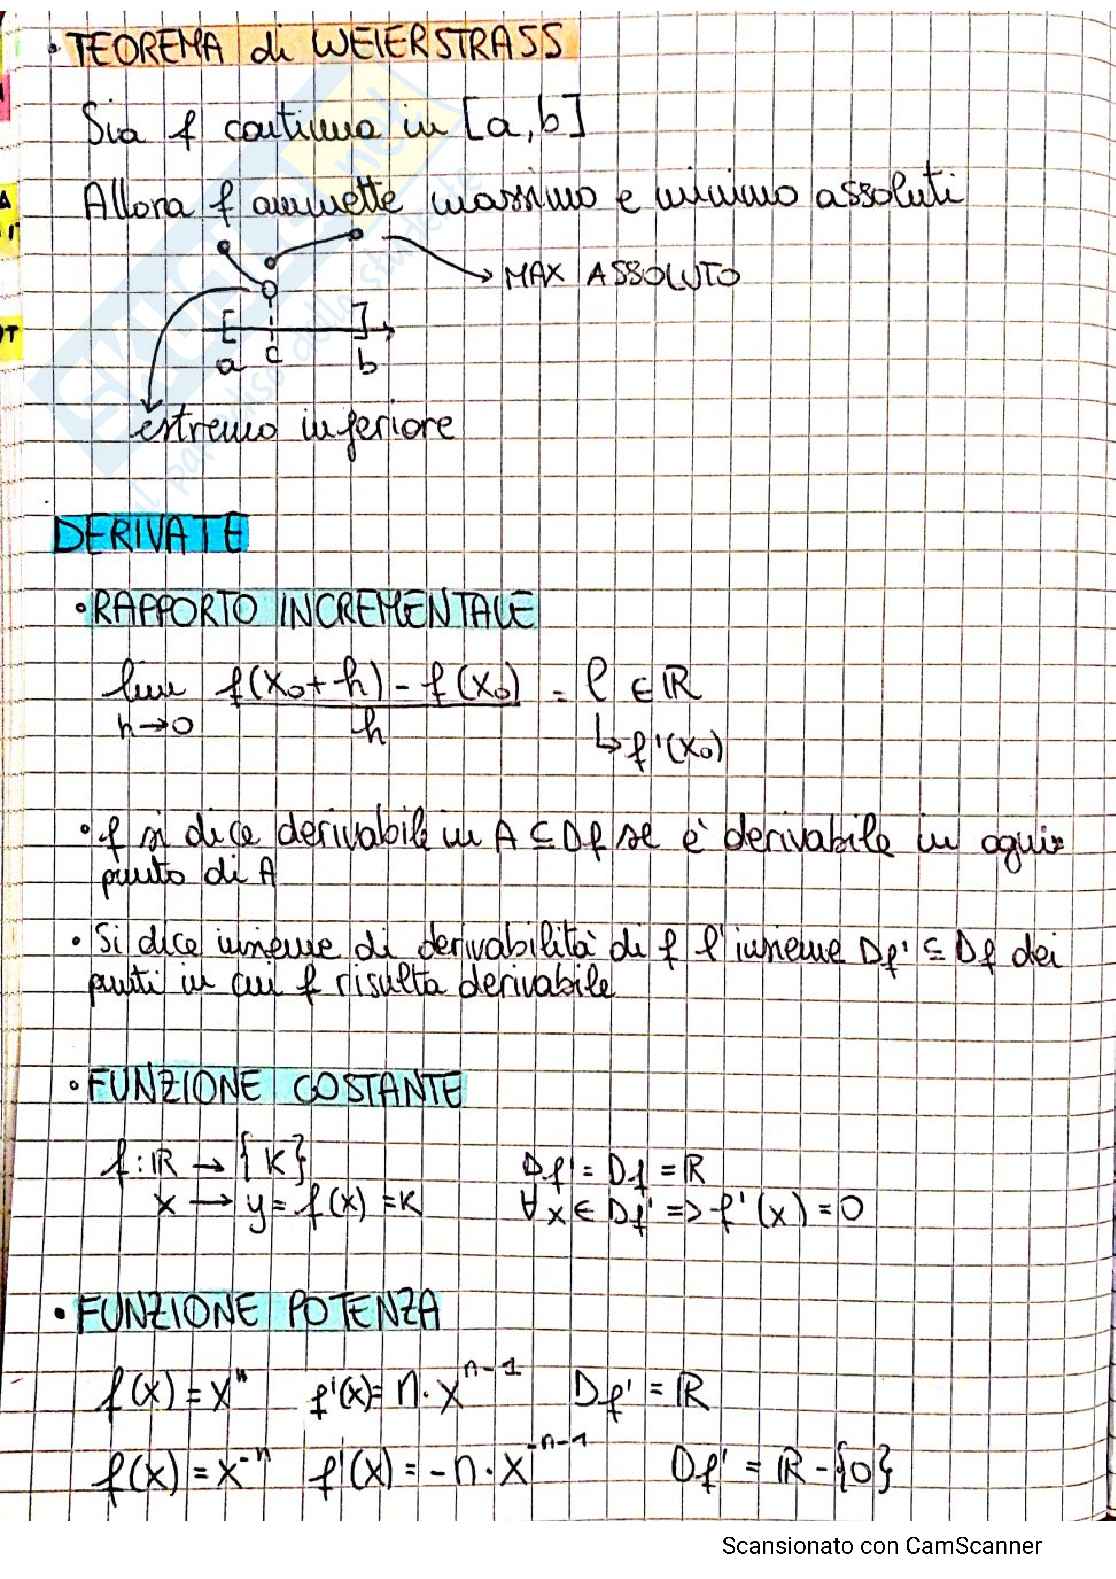 • TEOREMA di WEIERSTRASS
Sia f continua in [a,b]
Allora f ammette massimo e minimo assoluti
MAX ASSOLUTO
[ ]
a c b
estremo inferiore
DERIVATE
• RAPPORTO INCREMENTALE
lim f(x₀+h) - f(x₀) = l ∈ ℝ
h→0 h ↳ f'(x₀)
• f si dice derivabile in A ⊆ Df se è derivabile in ogni
punto di A
• Si dice insieme di derivabilità di f l'insieme Df' ⊆ Df dei
punti in cui f risulta derivabile
• FUNZIONE COSTANTE
f: ℝ → {K} Df' = Df = ℝ
x → y = f(x) = K ∀x ∈ Df' => f'(x) = 0
• FUNZIONE POTENZA
f(x) = xⁿ f'(x) = n · xⁿ⁻¹ Df' = ℝ
f(x) = x⁻ⁿ f'(x) = -n · x⁻ⁿ⁻¹ Df' = ℝ - {0}
Skuola.net
il paradiso dello studente
Scansionato con CamScanner